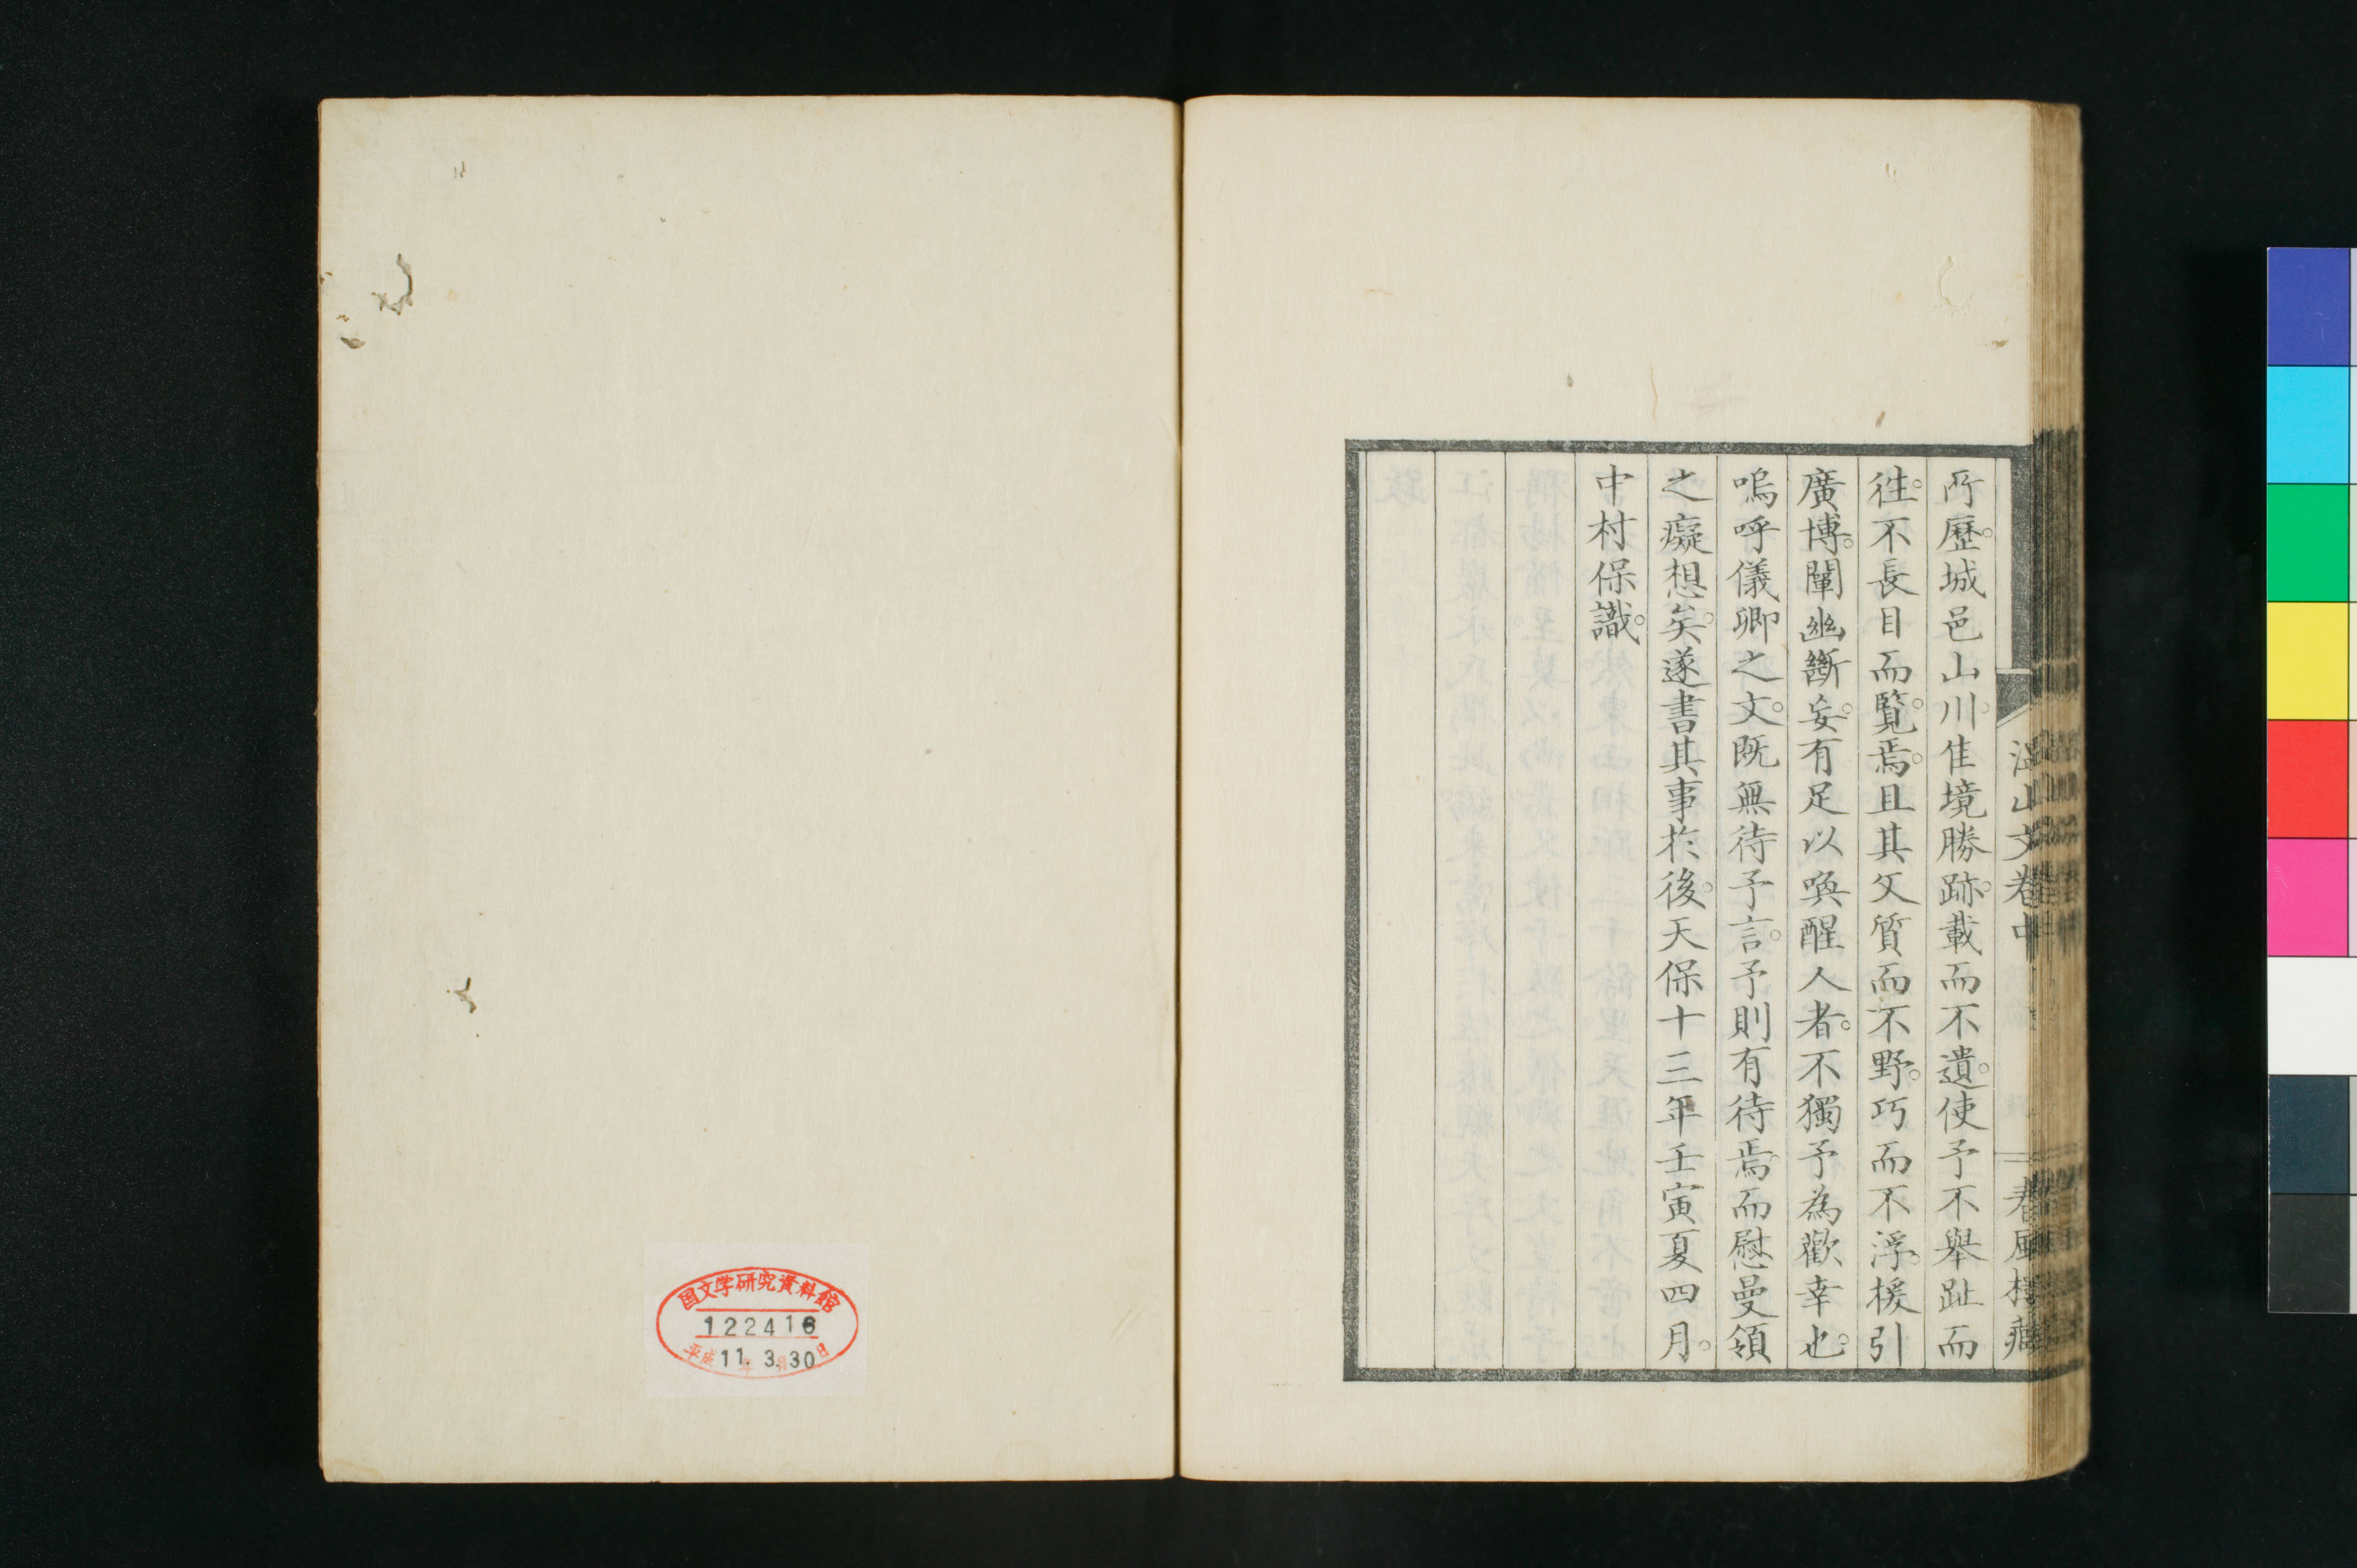 所歷。城邑山川。佳境勝跡。載而不遺。使予不舉趾而
往。不長目而覽。焉。且其文質而不野。巧而不浮。援引
廣博。闡幽斷妄。有足以喚醒人者。不獨予為歡幸也。
嗚呼儀卿之文。既無待予言。予則有待焉。而慰曼領
之癡想矣。遂書其事於後。天保十三年壬寅夏四月。
中村保識。
温山文卷中
春風樓藏
国文学研究資料館
122416
平成11年3月30日